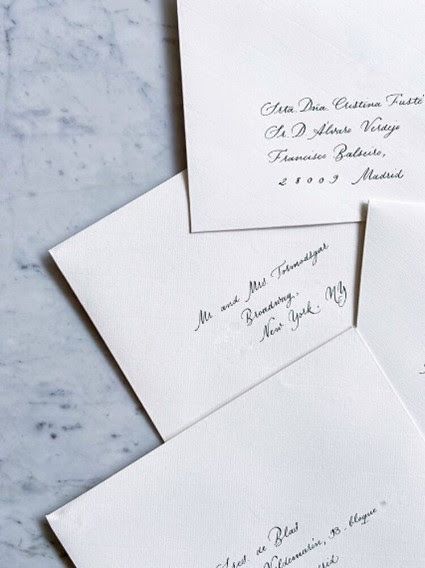 Srta. Dña Cristina Fusté
Sr. D Álvaro Verdejo
Francisco Balseiro,
28009 Madrid
Mr and Mrs Tormodsgar
Broadway,
New York NY
de Blas
Valdemarín, 13 bloque